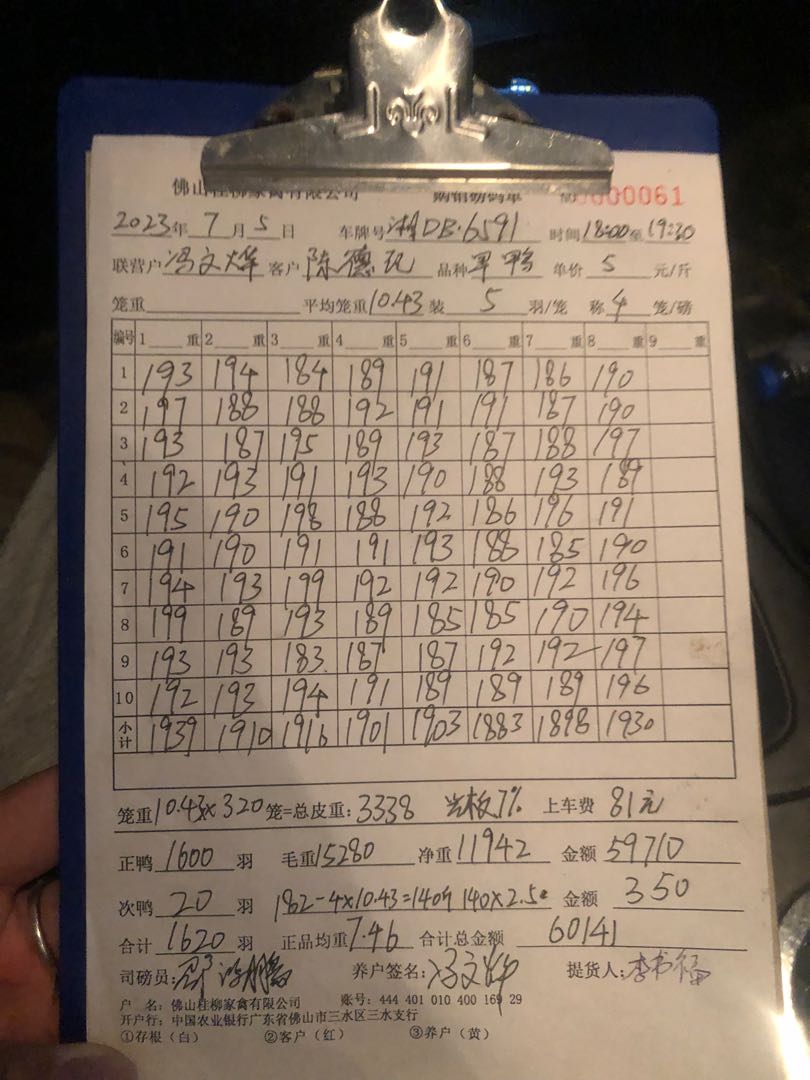 佛山桂柳家禽有限公司 购销磅码单 №0000061
2023年 7月 5日 车牌号 湘DB·6591 时间 18:00至19:30
联营户 冯文烽 客户 陈德 品种 单价 5 元/斤
笼重 平均笼重 10.43 装 5 羽/笼 称 4 笼/磅
编号 1 重 2 重 3 重 4 重 5 重 6 重 7 重 8 重 9 重
1 193 194 184 189 191 187 186 190
2 197 188 188 192 191 191 187 190
3 193 187 195 189 193 187 188 197
4 192 193 191 193 190 188 193 189
5 195 190 198 188 192 186 196 191
6 191 190 191 191 193 188 185 190
7 194 193 199 192 192 190 192 196
8 199 189 193 189 185 185 190 194
9 193 193 183. 187 187 192 192 197
10 192 193 194 191 189 189 189 196
小计 1939 1910 1916 1901 1903 1883 1898 1930
笼重 10.43×320 笼=总皮重: 3338 7% 上车费 81元
正鸭 1600 羽 毛重 15280 净重 11942 金额 59710
次鸭 20 羽 182-4×10.43=140斤 140×2.5 金额 350
合计 1620 羽 正品均重 7.46 合计总金额 60141
司磅员: 养户签名: 冯文烽 提货人: 李书福
户 名: 佛山桂柳家禽有限公司 账号: 444 401 010 400 169 29
开户行: 中国农业银行广东省佛山市三水区三水支行
①存根(白) ②客户(红) ③养户(黄)